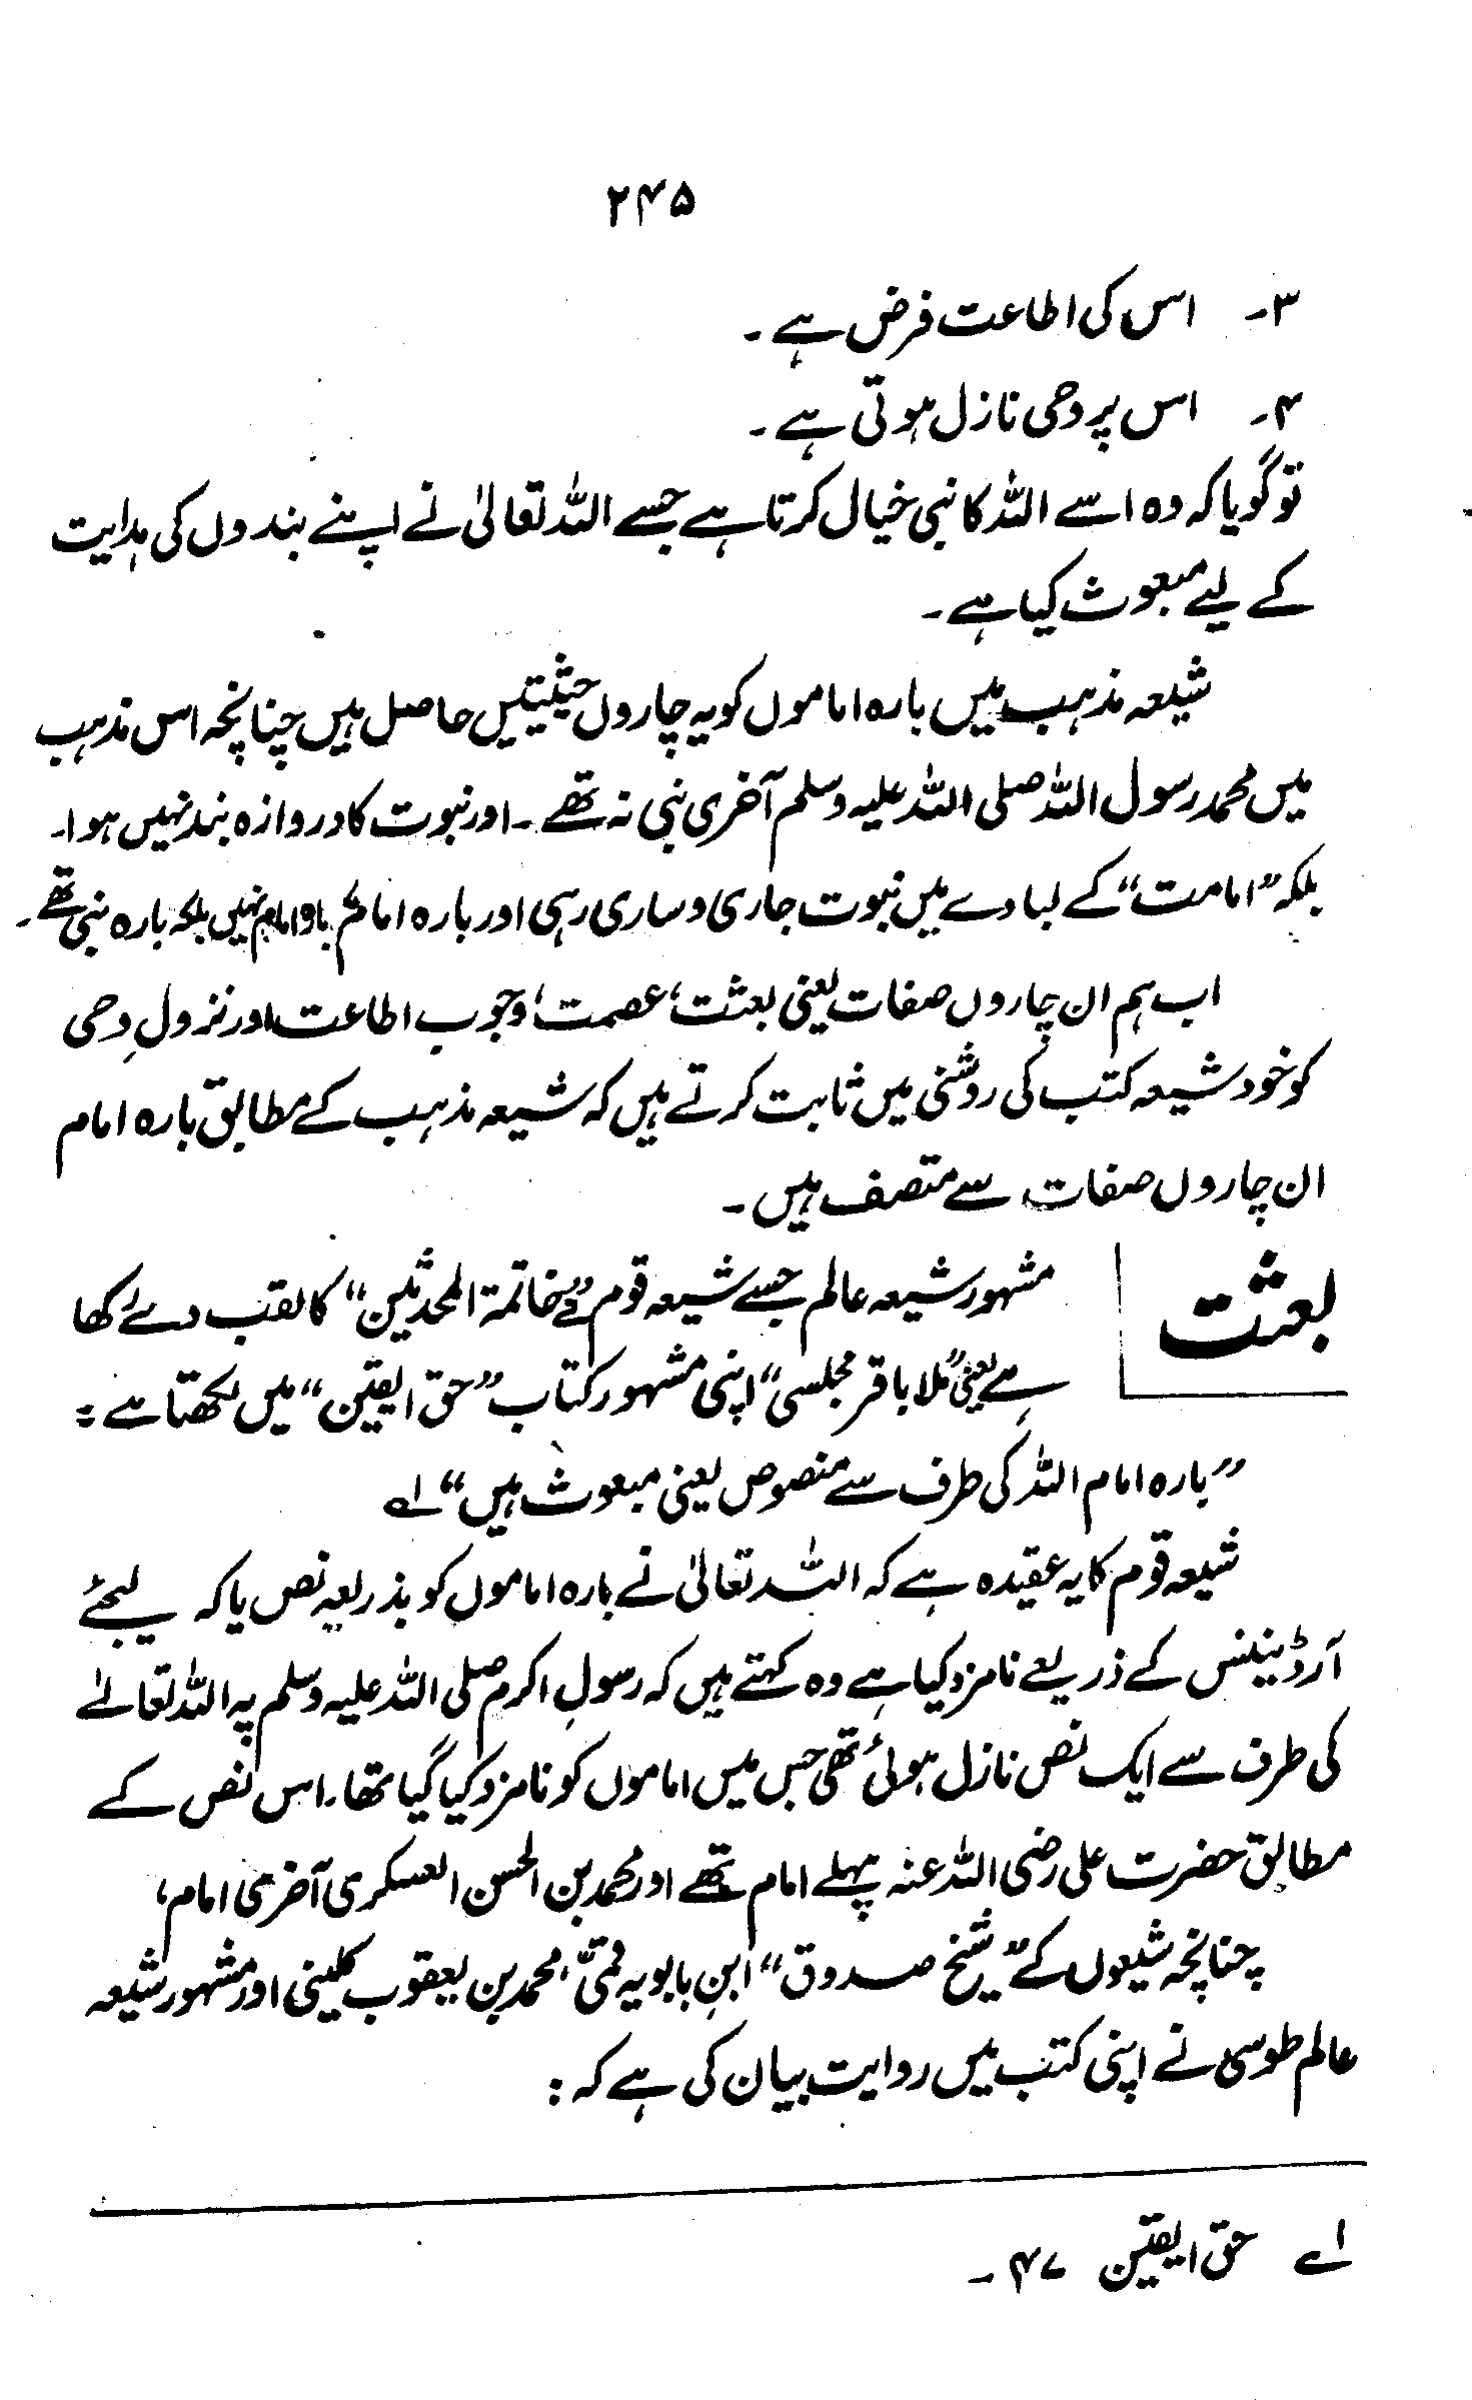 ۲۴۵
۳۔ اس کی اطاعت فرض ہے۔
۴۔ اس پر وحی نازل ہوتی ہے۔
تو گویا کہ وہ اسے اللہ کا نبی خیال کرتا ہے جسے اللہ تعالیٰ نے اپنے بندوں کی ہدایت
کے لیے مبعوث کیا ہے۔
شیعہ مذہب میں بارہ اماموں کو یہ چاروں حیثیتیں حاصل ہیں چنانچہ اس مذہب
میں محمد رسول اللہ صلی اللہ علیہ وسلم آخری نبی نہ تھے۔ اور نبوت کا دروازہ بند نہیں ہوا۔
بلکہ "امامت" کے لبادے میں نبوت جاری و ساری رہی اور بارہ امام نہیں بلکہ بارہ نبی تھے۔
اب ہم ان چاروں صفات یعنی بعثت، عصمت، وجوب اطاعت اور نزولِ وحی
کو خود شیعہ کتب کی روشنی میں ثابت کرتے ہیں کہ شیعہ مذہب کے مطابق بارہ امام
ان چاروں صفات سے متصف ہیں۔
بعثت
مشہور شیعہ عالم جسے شیعہ قوم نے "خاتمة المحدثین" کا لقب دے رکھا
ہے یعنی "ملا باقر مجلسی" اپنی مشہور کتاب "حق الیقین" میں لکھتا ہے :
"بارہ امام اللہ کی طرف سے منصوص یعنی مبعوث ہیں" ۱ے
شیعہ قوم کا یہ عقیدہ ہے کہ اللہ تعالیٰ نے بارہ اماموں کو بذریعہ نص یا کہ لیجئے
آرڈیننس کے ذریعے نامزد کیا ہے وہ کہتے ہیں کہ رسولِ اکرم صلی اللہ علیہ وسلم پہ اللہ تعالےٰ
کی طرف سے ایک نص نازل ہوئی تھی جس میں اماموں کو نامزد کیا گیا تھا۔ اس نص کے
مطابق حضرت علی رضی اللہ عنہ پہلے امام تھے اور محمد بن الحسن العسکری آخری امام،
چنانچہ شیعوں کے "شیخ صدوق" ابنِ بابویہ قمیؔ، محمد بن یعقوب کلینی اور مشہور شیعہ
عالم طوسی نے اپنی کتب میں روایت بیان کی ہے کہ :
۱ے حق الیقین ۴۷۔